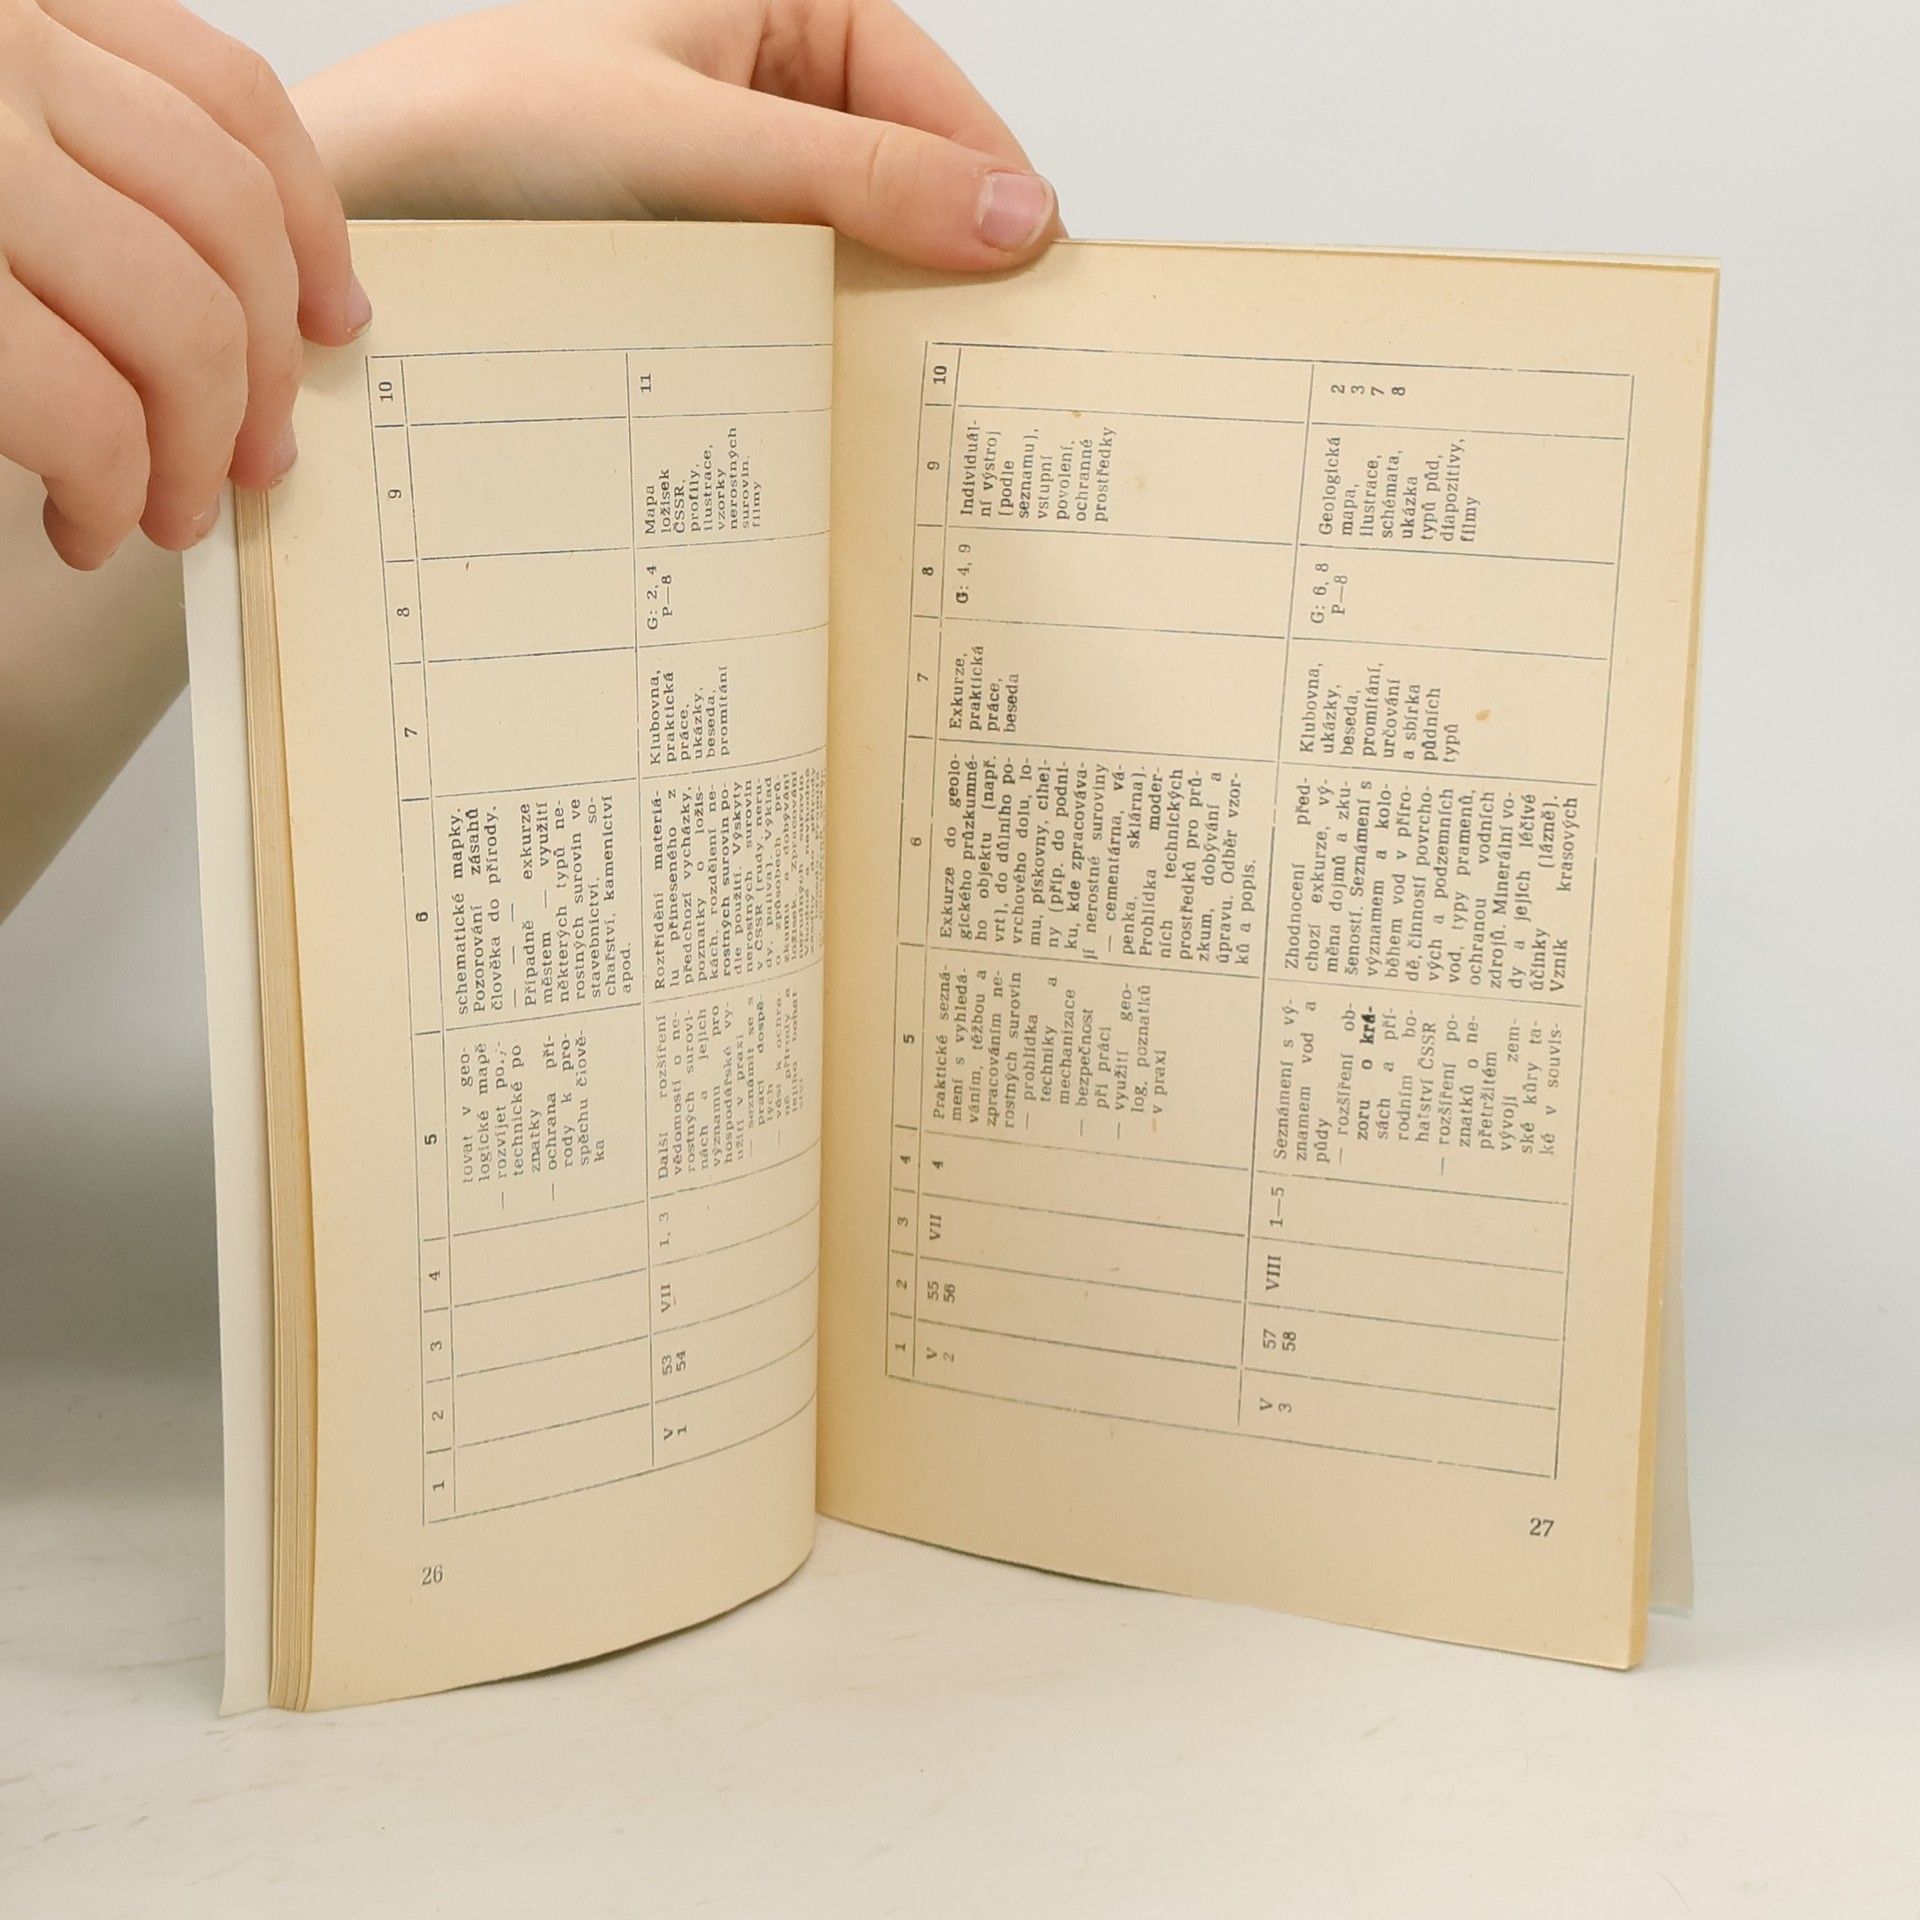 1 2 3 4 5 6 7 8 9 10
tovat v geo-
logické mapě
— rozvíjet
technické po
znatky
— ochrana pří-
rody k pro-
spěchu člově-
ka
schematické mapky.
Pozorování zásahů
člověka do přírody.
— — — —
Případně — exkurze
městem — využití
některých typů ne-
rostných surovin ve
stavebnictví, so-
chařství, kamenictví
apod.
V
1
53
54
VII
1, 3
Další rozšíření
vědomostí o ne-
rostných surovi-
nách a jejich
významu pro
hospodářské vy-
užití v praxi
— seznámit se s
prací dospě-
lých
— vést k ochra-
ně přírody a
jejího bohat
ství
Roztřídění materiá-
lu přineseného z
předchozí vycházky,
poznatky o ložis-
kách, rozdělení ne-
rostných surovin po-
dle použití. Výskyty
nerostných surovin
v ČSSR (rudy, neru-
dy, paliva). Výklad
o způsobech prů-
zkumu a dobývání
ložisek. Zpracování
nerostných surovin
Klubovna,
praktická
práce,
ukázky,
beseda,
promítání
G: 2, 4
P—8
Mapa
ložisek
ČSSR,
profily,
ilustrace,
vzorky
nerostných
surovin.
filmy
11
26
1 2 3 4 5 6 7 8 9 10
V
2
55
56
VII
4
Praktické sezná-
mení s vyhledá-
váním, těžbou a
zpracováním ne-
rostných surovin
— prohlídka
techniky a
mechanizace
— bezpečnost
při práci
— využití geo-
log. poznatků
v praxi
Exkurze do geolo-
gického průzkumné-
ho objektu (např.
vrt), do důlního po-
vrchového dolu, lo-
mu, pískovny, cihel-
ny (příp. do podni-
ku, kde zpracováva-
jí nerostné suroviny
— cementárna, vá-
penka, sklárna).
Prohlídka moder-
ních technických
prostředků pro prů-
zkum, dobývání a
úpravu. Odběr vzor-
ků a popis.
Exkurze,
praktická
práce,
beseda
G: 4, 9
Individuál-
ní výstroj
(podle
seznamu),
vstupní
povolení,
ochranné
prostředky
V
3
57
58
VIII
1—5
Seznámení s vý-
znamem vod a
půdy
— rozšíření ob-
zoru o krá-
sách a pří-
rodním bo-
hatství ČSSR
— rozšíření po-
znatků o ne-
přetržitém
vývoji zem-
ské kůry ta-
ké v souvis-
Zhodnocení před-
chozí exkurze, vý-
měna dojmů a zku-
šeností. Seznámení s
významem a kolo-
během vod v příro-
dě, činností povrcho-
vých a podzemních
vod, typy pramenů,
ochranou vodních
zdrojů. Minerální vo-
dy a jejich léčivé
účinky (lázně).
Vznik krasových
Klubovna,
ukázky,
beseda,
promítání,
určování
a sbírka
půdních
typů
G: 6, 8
P—8
Geologická
mapa,
ilustrace,
schémata,
ukázka
typů půd,
diapozitivy,
filmy
2
3
7
8
27